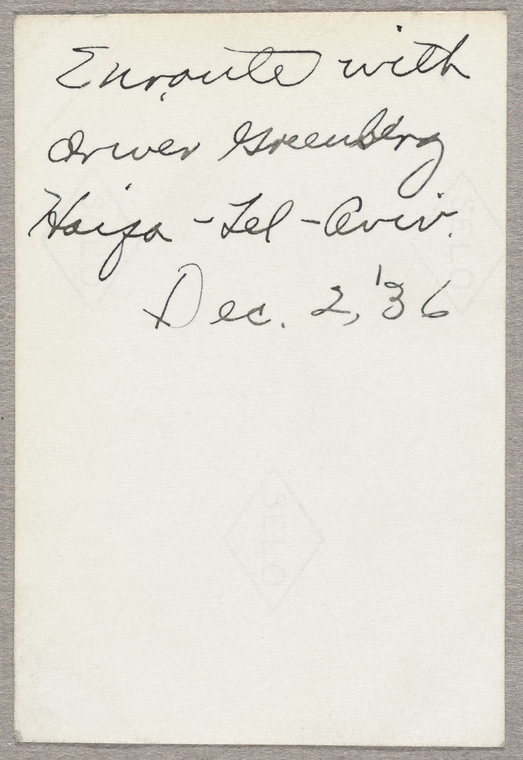 Enroute with
driver Greenberg
Haifa - Tel - Aviv.
Dec. 2, '36
SELO
SELO
SELO